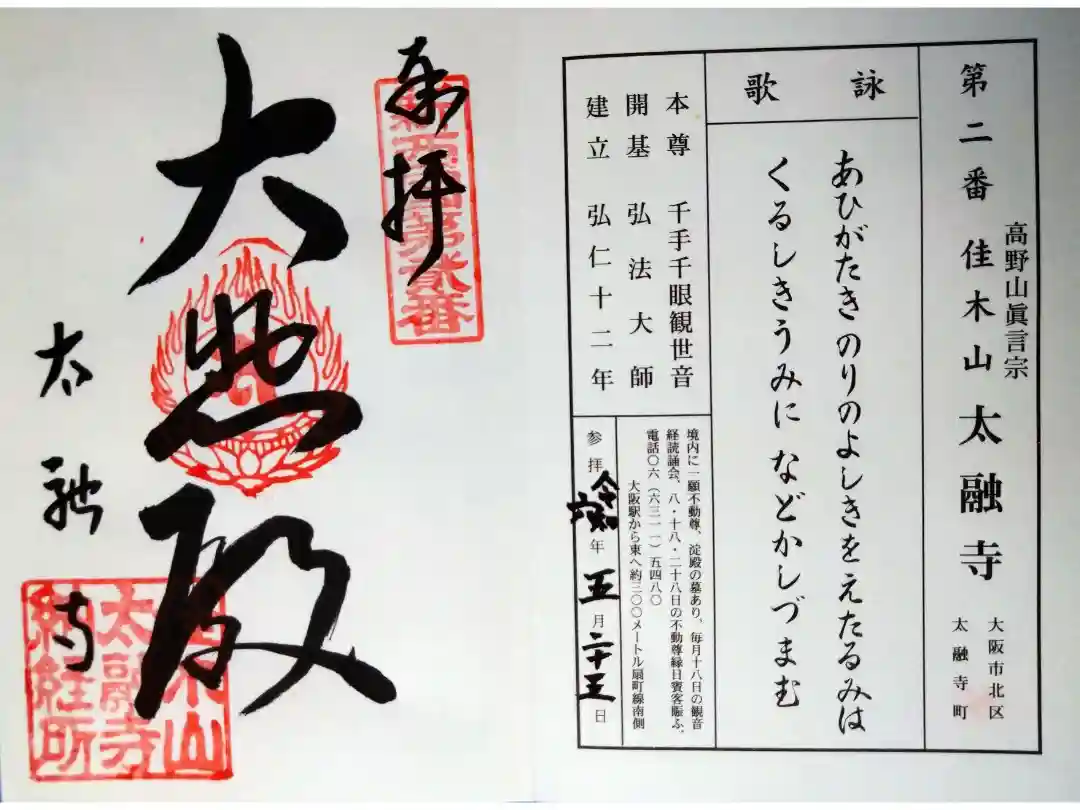 第二番 佳木山 太融寺
高野山眞言宗
大阪市北区
太融寺町
詠歌
あひがたき のりのよしきをえたるみは
くるしきうみに などかしづまむ
本尊 千手千眼観世音
開基 弘法大師
建立 弘仁十二年
境内に一願不動尊、淀殿の墓あり、毎月十八日の観音
経読誦会、八・十八・二十八日の不動尊縁日賓客賑ふ、
電話〇六(六三一一)五四八〇
大阪駅から東へ約三〇〇メートル扇町線南側
参拝 令和六年 五月 二十三日
奉拝
新西国第弐番
大悲殿
太融寺
佳木山
太融寺
納経所